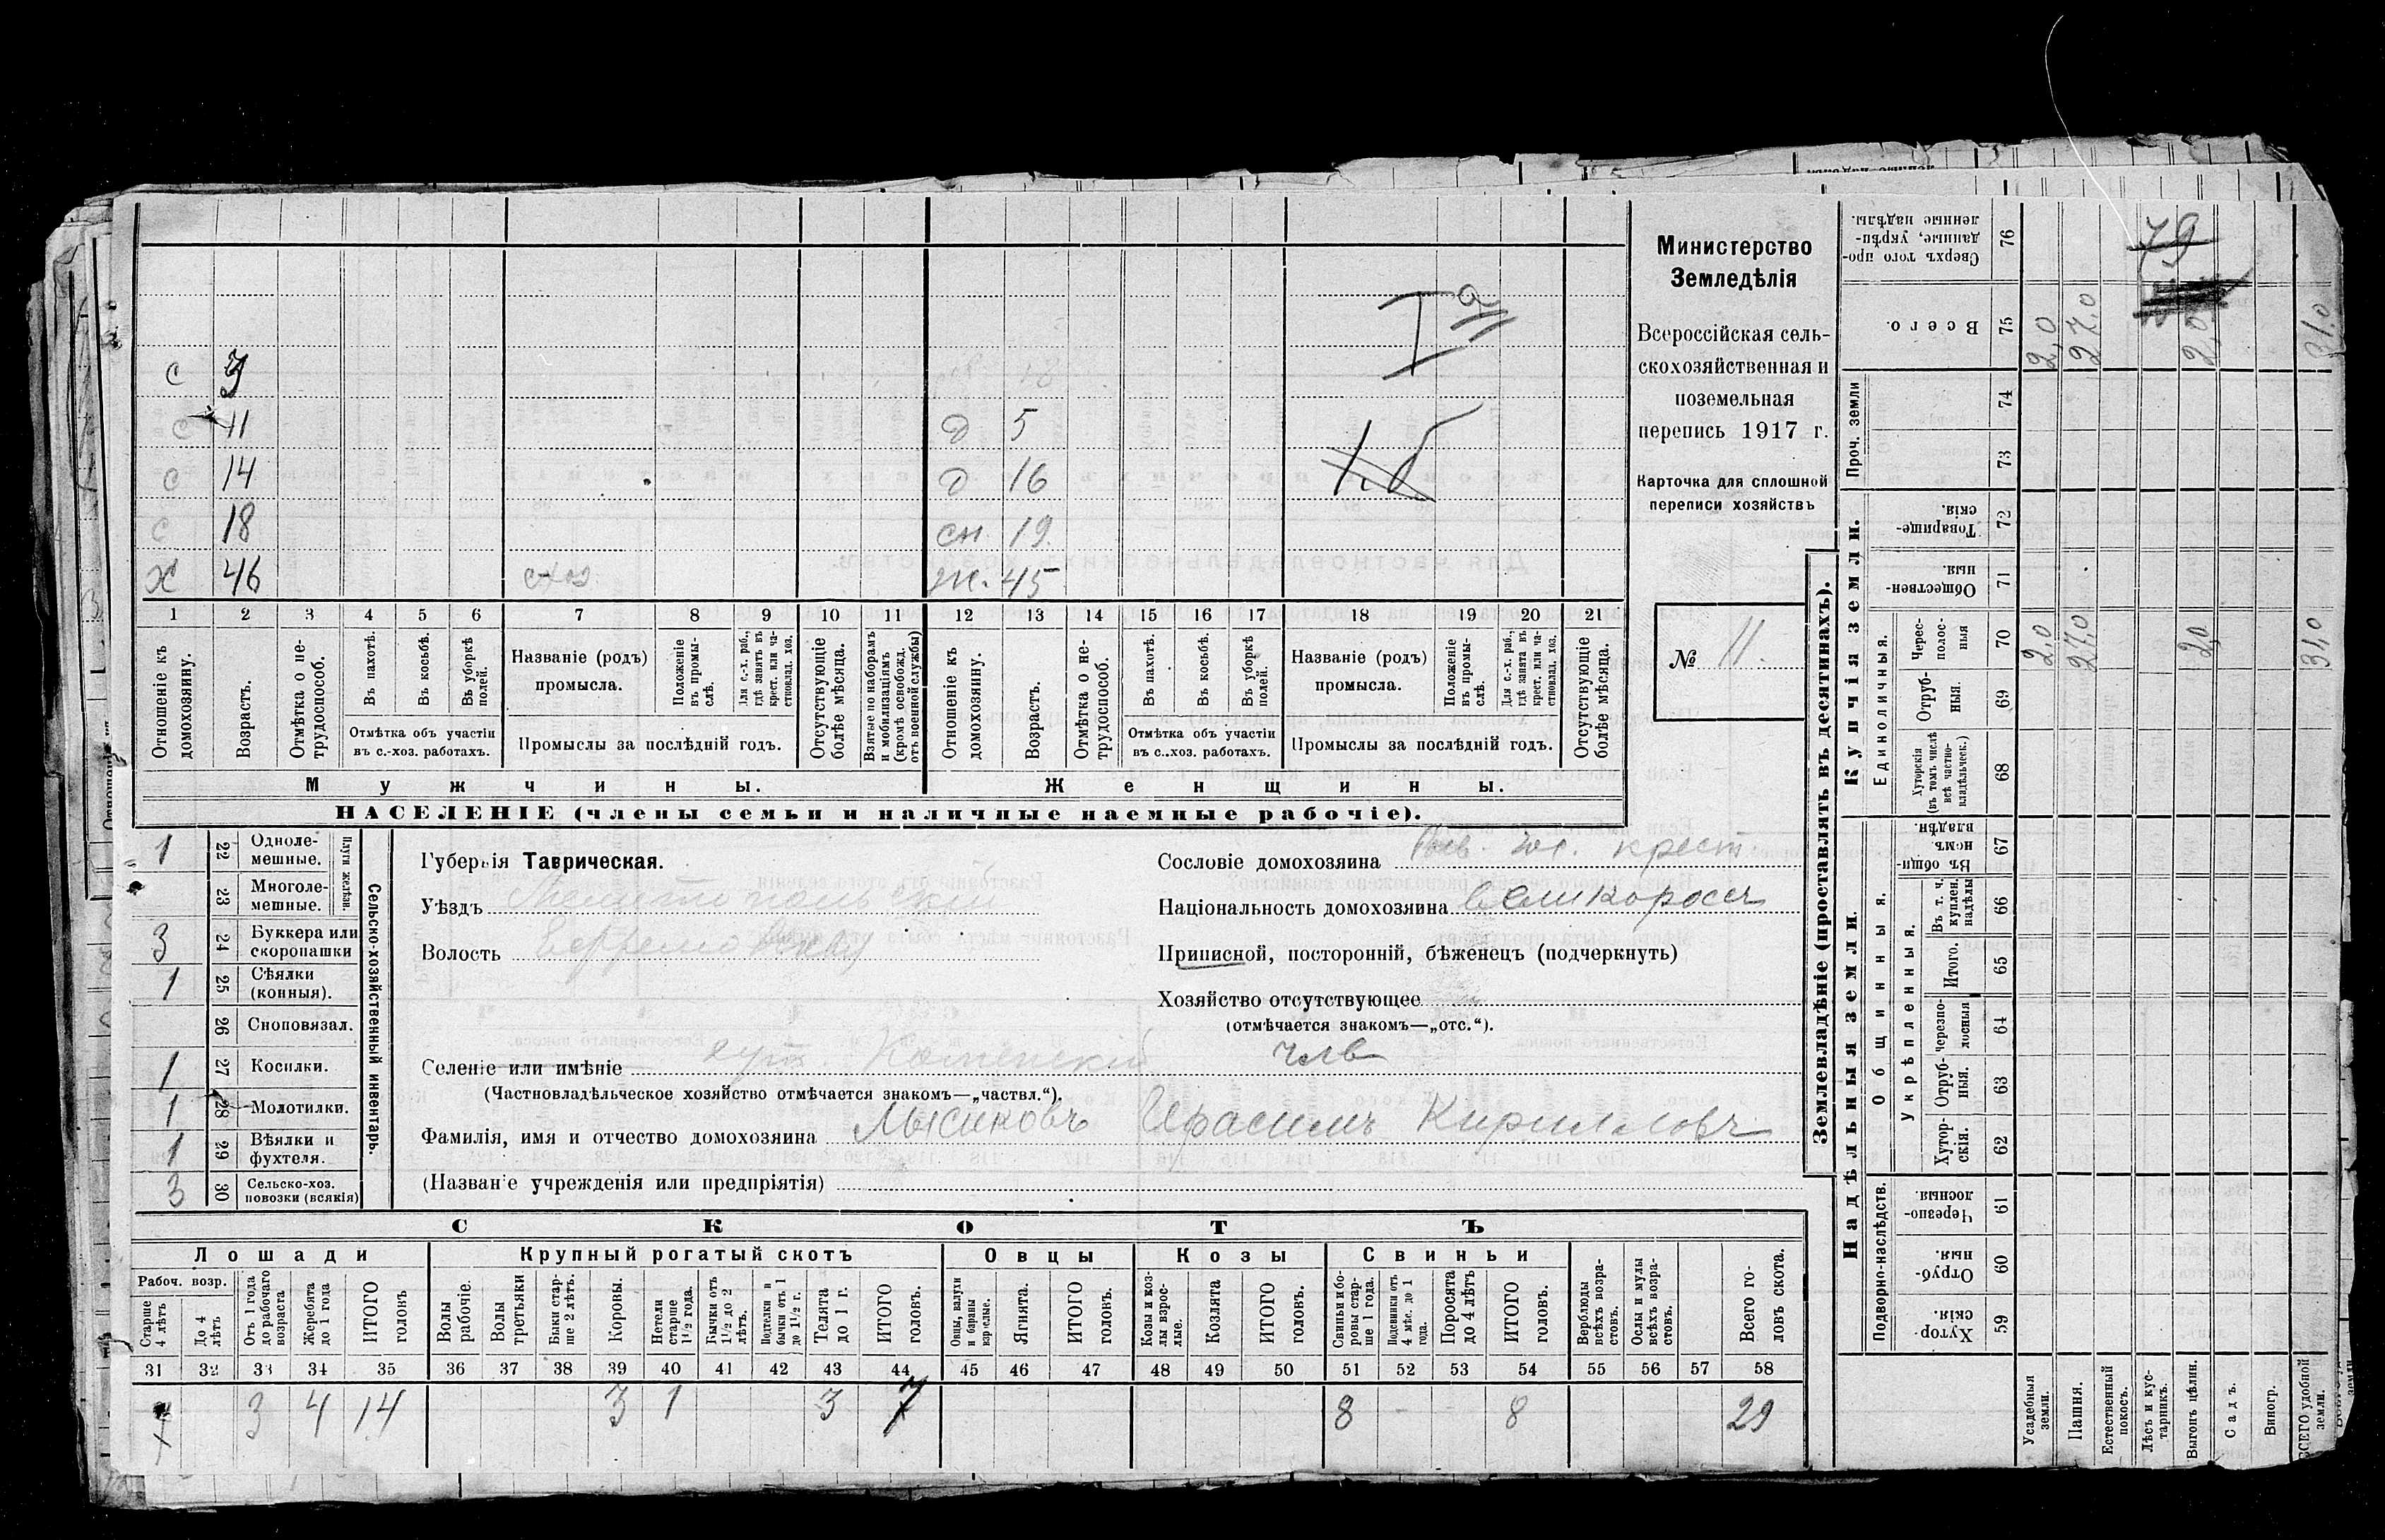 79
Iа
с 3
с 11 д 5
с 14 д 16
1.б
с 18 сн. 19.
х 46 схоз ж. 45
1 2 3 4 5 6 7 8 9 10 11 12 13 14 15 16 17 18 19 20 21
Отношеніе къ домохозяину.
Возрастъ.
Отмѣтка о нетрудоспособ.
Въ пахотѣ.
Въ косьбѣ.
Въ уборкѣ полей.
Отмѣтка объ участіи
въ с.-хоз. работахъ.
Названіе (родъ)
промысла.
Положеніе въ промыслѣ.
Для с.-х. раб., гдѣ занятъ въ крест. или частновлад. хоз.
Промыслы за послѣдній годъ.
Отсутствующіе болѣе мѣсяца.
Взятые по наборамъ и мобилизаціямъ (кромѣ освобожд. отъ военной службы)
Отношеніе къ домохозяину.
Возрастъ.
Отмѣтка о нетрудоспособ.
Въ пахотѣ.
Въ косьбѣ.
Въ уборкѣ полей.
Отмѣтка объ участіи
въ с.-хоз. работахъ.
Названіе (родъ)
промысла.
Положеніе въ промыслѣ.
Для с.-х. раб., гдѣ занята въ крест. или частновлад. хоз.
Промыслы за послѣдній годъ.
Отсутствующіе болѣе мѣсяца.
Мужчины. Женщины.
НАСЕЛЕНІЕ (члены семьи и наличные наемные рабочіе).
Министерство
Земледѣлія
Всероссійская сель-
скохозяйственная и
поземельная
перепись 1917 г.
Карточка для сплошной
переписи хозяйствъ
№ 11.
Сельско-хозяйственный инвентарь.
Плуги желѣзн.
1 22 Одноле-
мешные.
23 Многоле-
мешные.
3 24 Буккера или
скоропашки
1 25 Сѣялки
(конныя).
26 Сноповязал.
1 27 Косилки.
1 28 Молотилки.
1 29 Вѣялки и
фухтеля.
3 30 Сельско-хоз.
повозки (всякія)
Губернія Таврическая.
Уѣздъ Мелитопольскій
Волость Ефремовская
Сословіе домохозяина крест
Національность домохозяина великороссъ
Приписной, посторонній, бѣженецъ (подчеркнуть)
Хозяйство отсутствующее
(отмѣчается знакомъ—„отс.“).
Селеніе или имѣніе хут.
(Частновладѣльческое хозяйство отмѣчается знакомъ—„частвл.“).
Фамилія, имя и отчество домохозяина Лысиковъ Герасимъ Кирилловъ
(Названіе учрежденія или предпріятія)
СКОТЪ
Лошади Крупный рогатый скотъ Овцы Козы Свиньи
Рабоч. возр.
Старше 4 лѣтъ
До 4 лѣтъ
Отъ 1 года до рабочаго возраста
Жеребята до 1 года
ИТОГО головъ
Волы рабочіе.
Волы третьяки
Быки старше 2 лѣтъ.
Коровы.
Нетели старше 1½ года.
Бычки отъ 1½ до 2 лѣтъ.
Подтелки и бычки отъ 1 до 1½ г.
Телята до 1 г.
ИТОГО головъ.
Овцы, валухи и бараны взрослые.
Ягнята.
ИТОГО головъ.
Козы и козлы взрослые.
Козлята
ИТОГО головъ.
Свиньи и боровы старше 1 года.
Подсвинки отъ 4 мѣс. до 1 года.
Поросята до 4 лѣтъ
ИТОГО головъ.
Верблюды всѣхъ возрастовъ.
Ослы и мулы всѣхъ возрастовъ.
Всего головъ скота.
31 32 33 34 35 36 37 38 39 40 41 42 43 44 45 46 47 48 49 50 51 52 53 54 55 56 57 58
3 4 14 3 1 3 7 8 8 29
Землевладѣніе (проставлять въ десятинахъ).
Надѣльныя земли. Купчія земли.
Подворно-наслѣдств.
Общинныя.
Укрѣпленныя.
Единоличныя.
Проч. земли
Хуторскія. 59
Отрубныя. 60
Черезполосныя 61
Хуторскія. 62
Отрубныя. 63
Черезполосныя 64
Итого. 65
Въ т. ч. куплен. надѣлы 66
Въ общинномъ владѣн. 67
Хуторскія (въ томъ числѣ всѣ частновладѣльческ.) 68
Отрубныя. 69
Черезполосныя 70
Общественныя. 71
Товарищескія. 72
73
74
Всего. 75
Сверхъ того проданные, укрѣпленные надѣлы. 76
Усадебныя земли. 2,0 2,0
Пашня. 27,0 27,0
Естественный покосъ.
Лѣсъ и кустарникъ.
Выгонъ цѣлин. 2,0 2,0
Садъ.
Виногр.
ВСЕГО удобной земли. 31,0 31,0